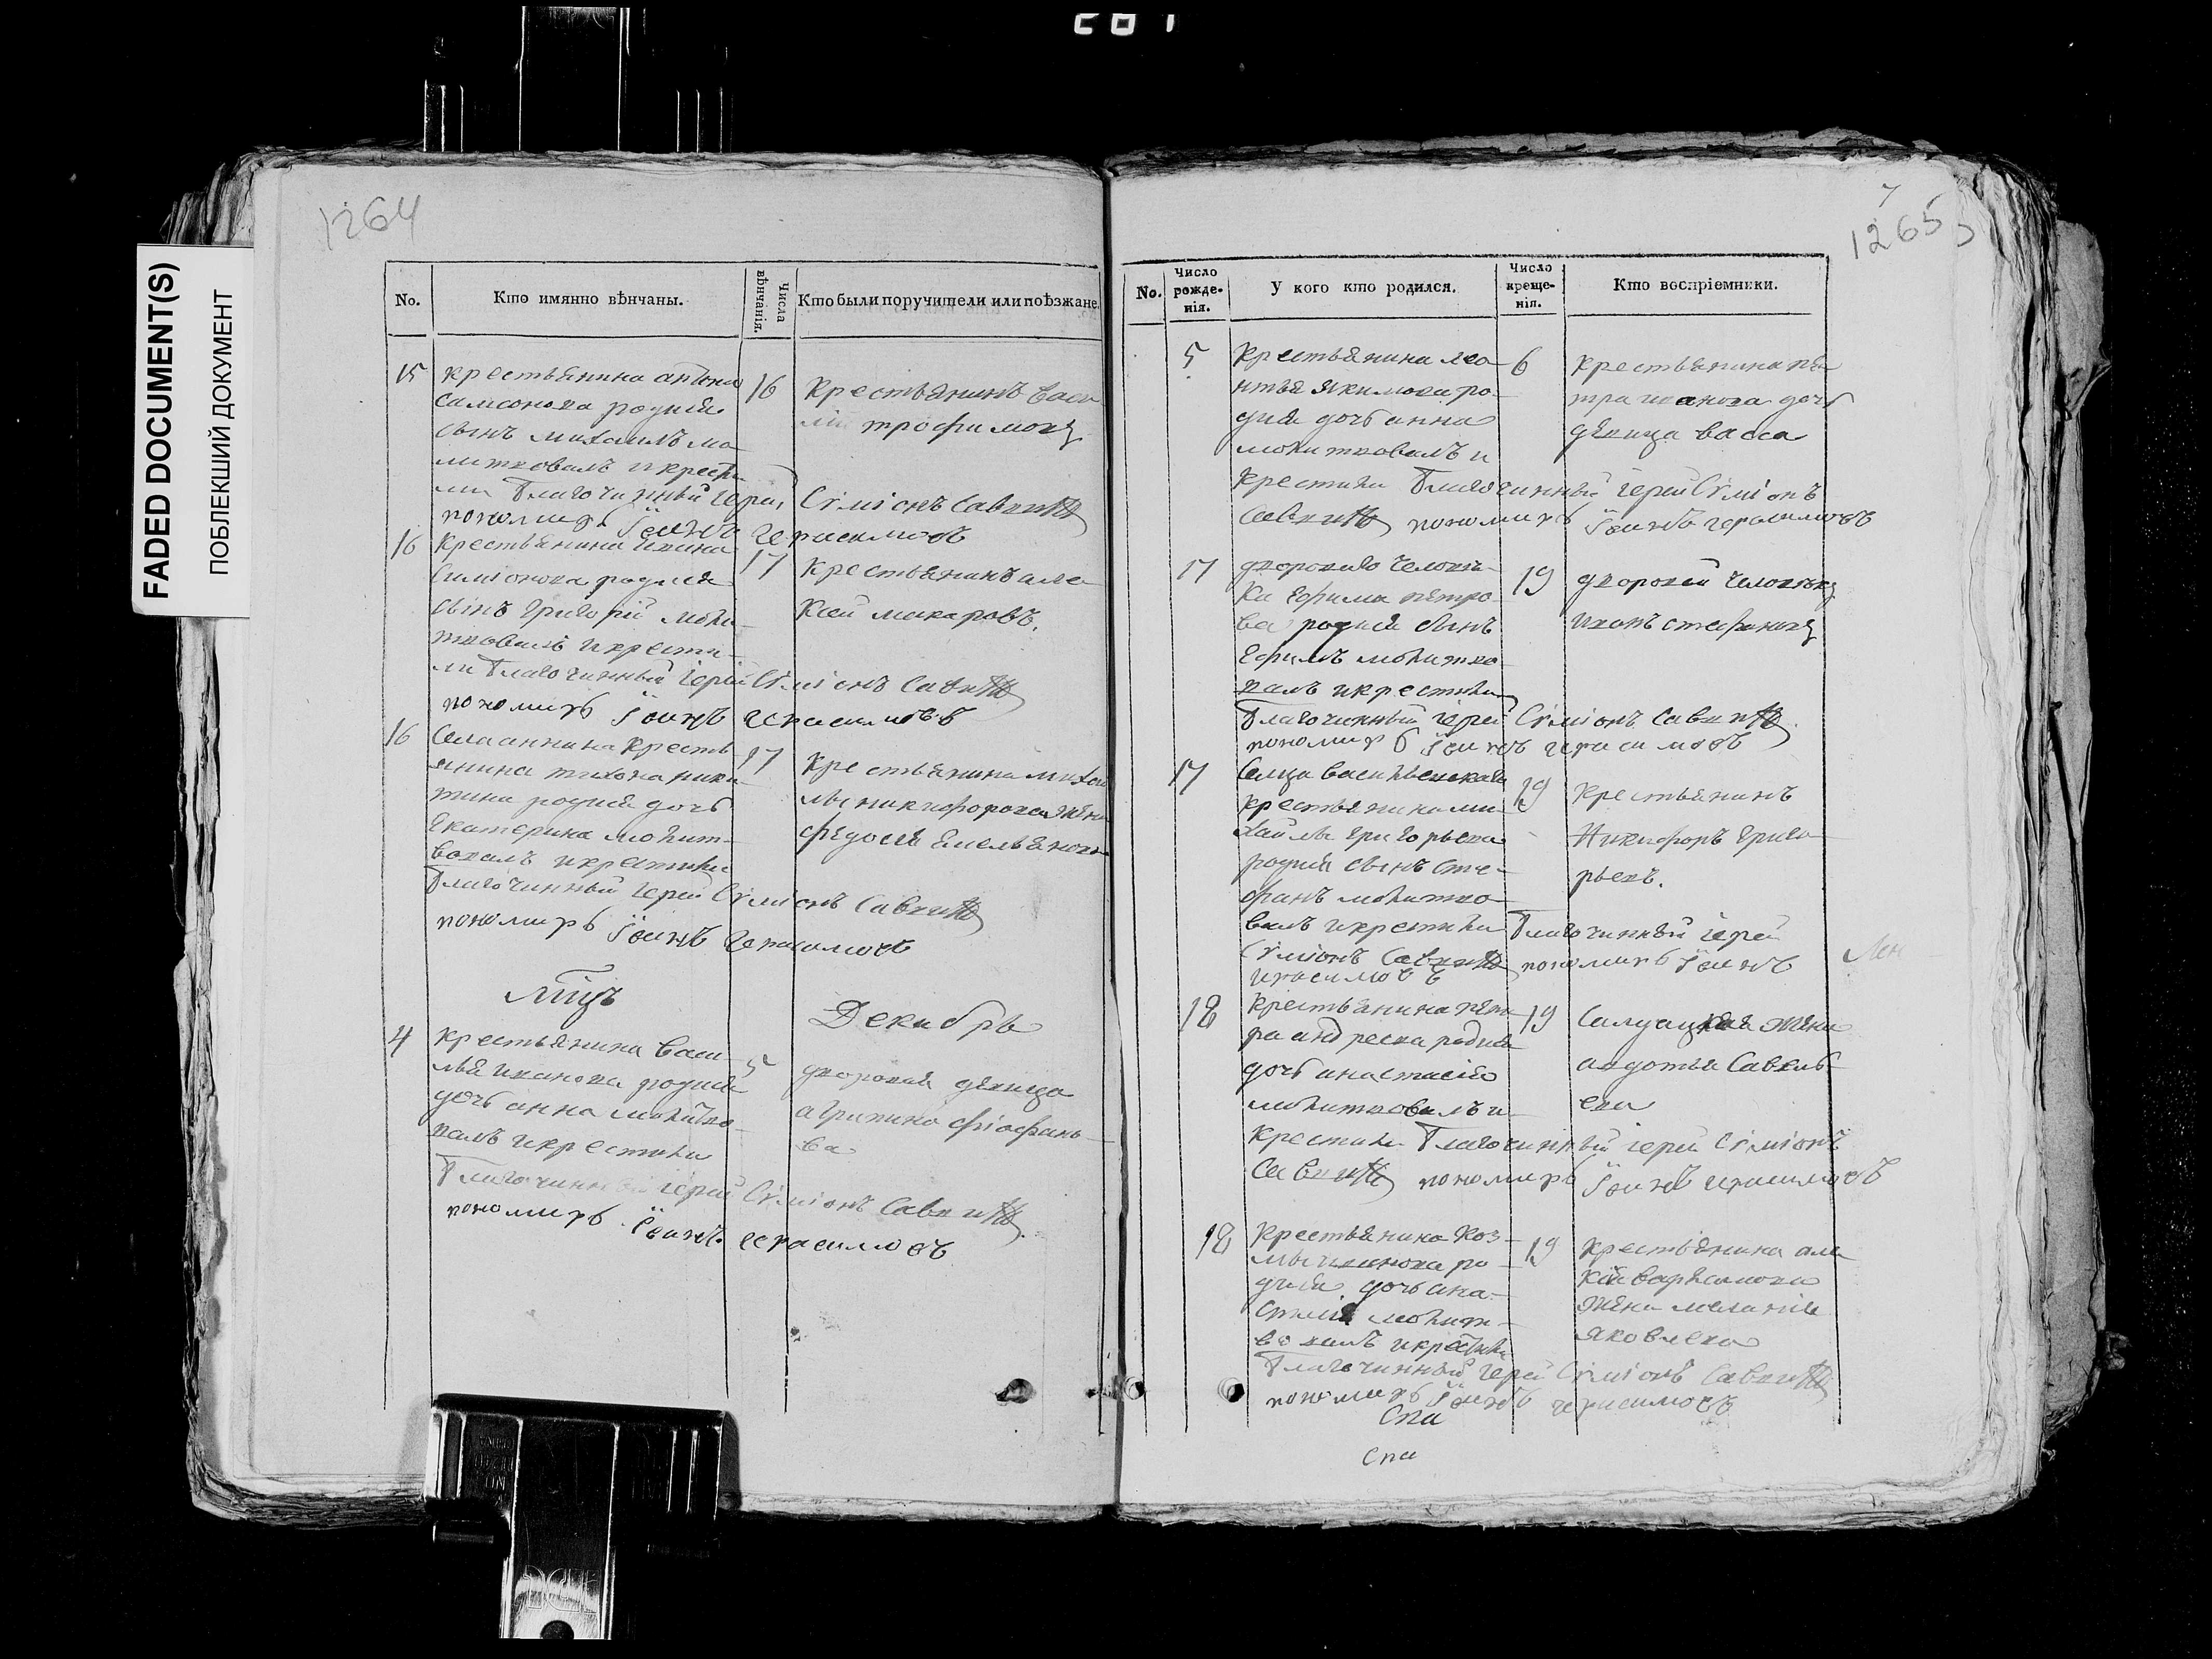 FADED DOCUMENT(S)
ПОБЛЕКШИЙ ДОКУМЕНТ
1264
No.
Кто имянно вѣнчаны.
Числа вѣнчанія.
Кто были поручители или поѣзжане.
15
крестьянина антона
самсонова родися
сынъ михаилъ мо
литвовалъ и крести
ли Благочинный іерей Сѵміонъ Савви
пономарь Іоаннъ герасимовъ
16
Крестьянинъ васи
лій трофимовъ
16
крестьянина ивана
симіонова родися
сынъ григорій моли
твовалъ и крести
ли Благочинный іерей Сѵміонъ Савви
пономарь Іоаннъ герасимовъ
17
крестьянинъ але
ксѣй макаровъ.
16
Села аннина кресть
янина тихона ники
тина родися дочь
Екатерина молит
вовалъ и крестили
Благочинный іерей Сѵміонъ Савви
пономарь Іоаннъ герасимовъ
17
крестьянина михаи
лы никифорова жена
федосья емельянова
Мцъ
Декабрь
4
крестьянина Васи
лья иванова родися
дочь анна молитво
валъ и крестили
Благочинный іерей Сѵміонъ Савви
пономарь Іоаннъ герасимовъ
5
дворовая девица
агрипина фіофано
ва
1265
No.
Число рожде-нія.
У кого кто родился.
Число креще-нія.
Кто воспріемники.
5
крестьянина лео
нтья якимова ро
дися дочь анна
молитвовалъ и
крестили Благочинный іерей Сѵміонъ
Савви пономарь Іоаннъ герасимовъ
6
крестьянина пе
тра иванова дочь
девица васса
17
двороваго челове
ка ефима петро
ва родися сынъ
Ефимъ молитво
валъ и крестили
Благочинный іерей Сѵміонъ Савви
пономарь Іоаннъ герасимовъ
19
дворовой человекъ
иванъ стефановъ
17
Селца васильевскаго
крестьянина ми
хайлы григорьева
родися сынъ сте
фанъ молитво
валъ и крестили Благочинный іерей
Сѵміонъ Савви пономарь Іоаннъ
герасимовъ
19
Крестьянинъ
Никифоръ григо
рьевъ.
18
крестьянина пет
ра андреева родися
дочь анастасія
молитвовалъ и
крестили Благочинный іерей Сѵміонъ
Савви пономарь Іоаннъ герасимовъ
19
Салдацкая жена
авдотья Савель
ева
18
крестьянина Коз
мы иванова ро
дися дочь ана
стасія молит
вовалъ и крестили
Благочинный іерей Сѵміонъ Савви
пономарь Іоаннъ герасимовъ
19
крестьянина але
ксѣя варфоломѣева
жена меланія
яковлева
Спа
Спа